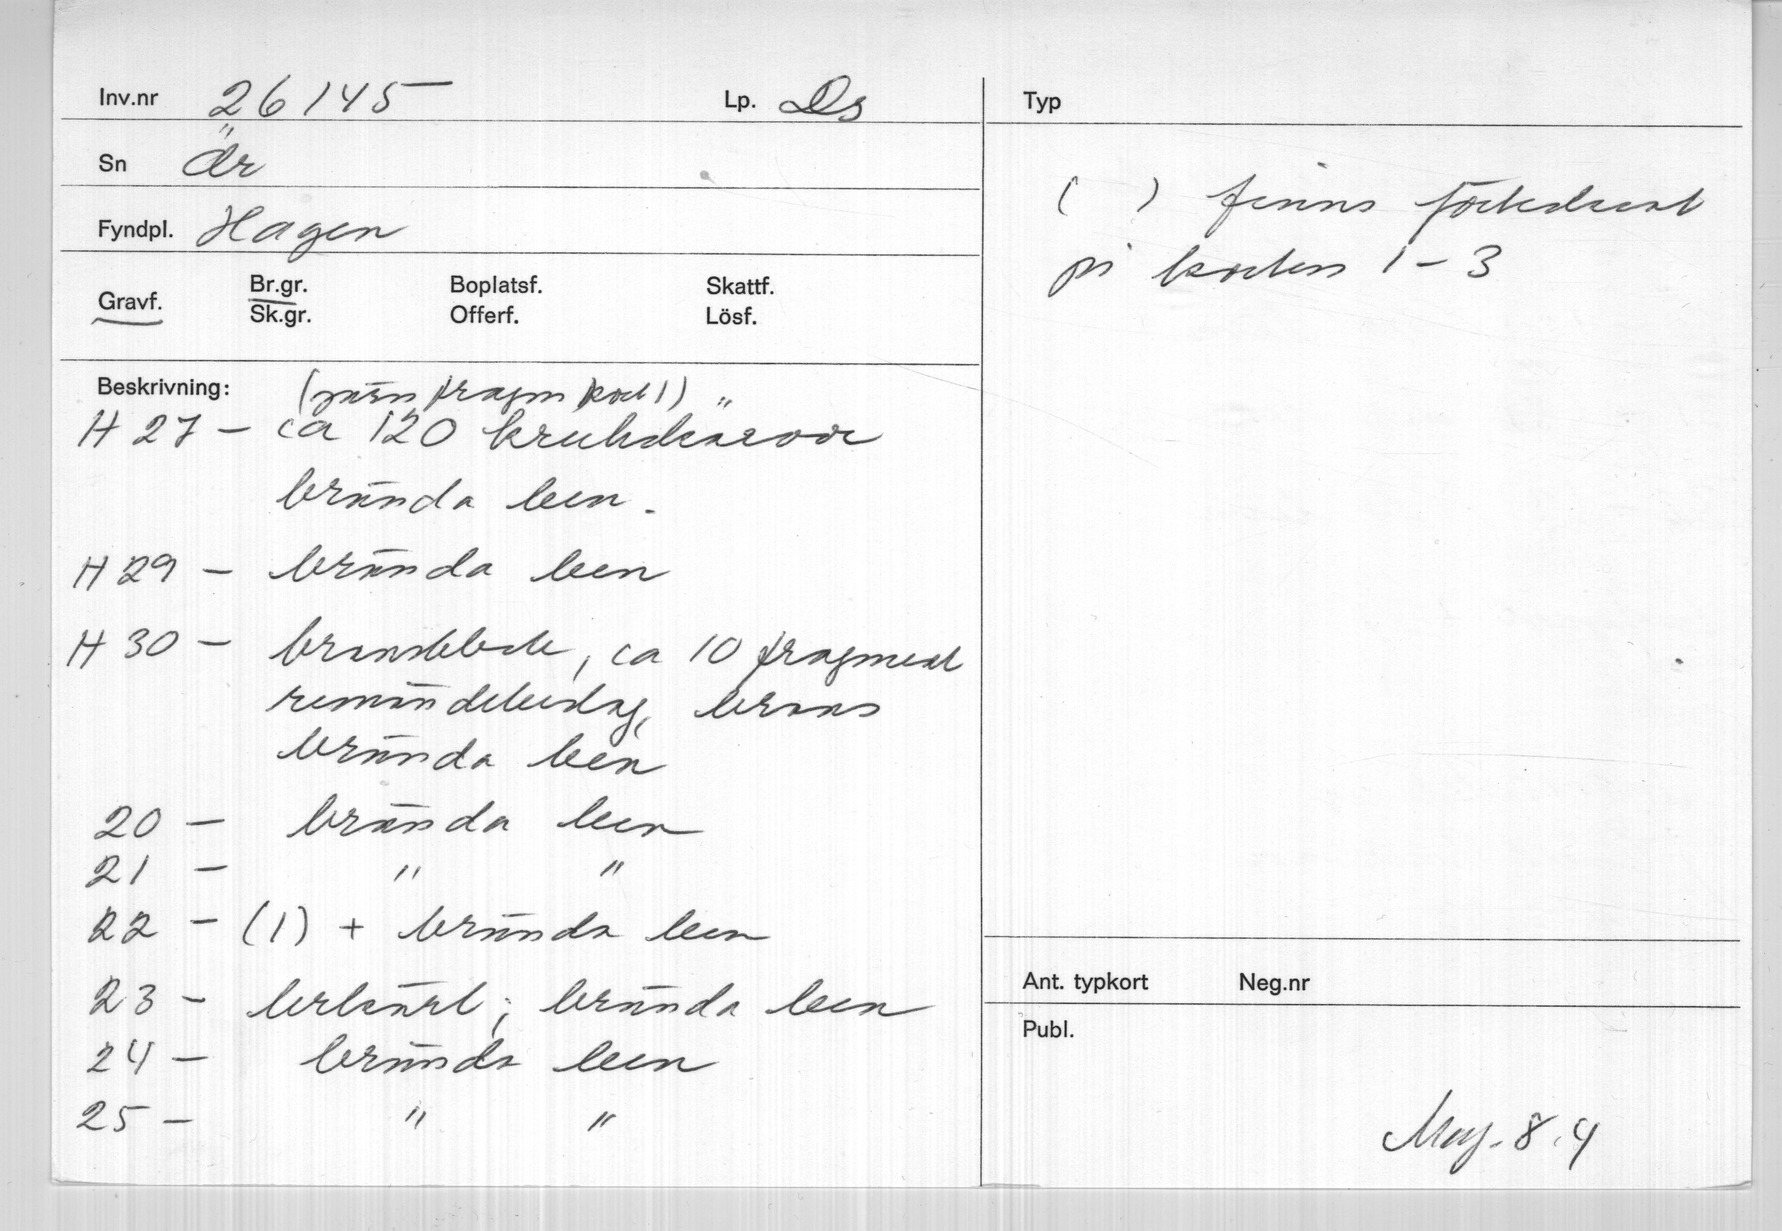 Inv.nr 26145 Lp. Ds
Sn Är
Fyndpl. Hagen
Gravf. Br.gr. Boplatsf. Skattf.
Sk.gr. Offerf. Lösf.
Beskrivning: (järnfragm kort 1)
H 27 – ca 120 krukskärvor
brända ben.
H 29 – brända ben
H 30 – ca 10 fragment
remändebeslag, brons
brända ben
20 – brända ben
21 – " "
22 – (1) + brända ben
23 – lerkärl; brända ben
24 – brända ben
25 – " "
Typ
( ) finns förtecknat
på korten 1-3
Ant. typkort Neg.nr
Publ.
Mag. 8.4